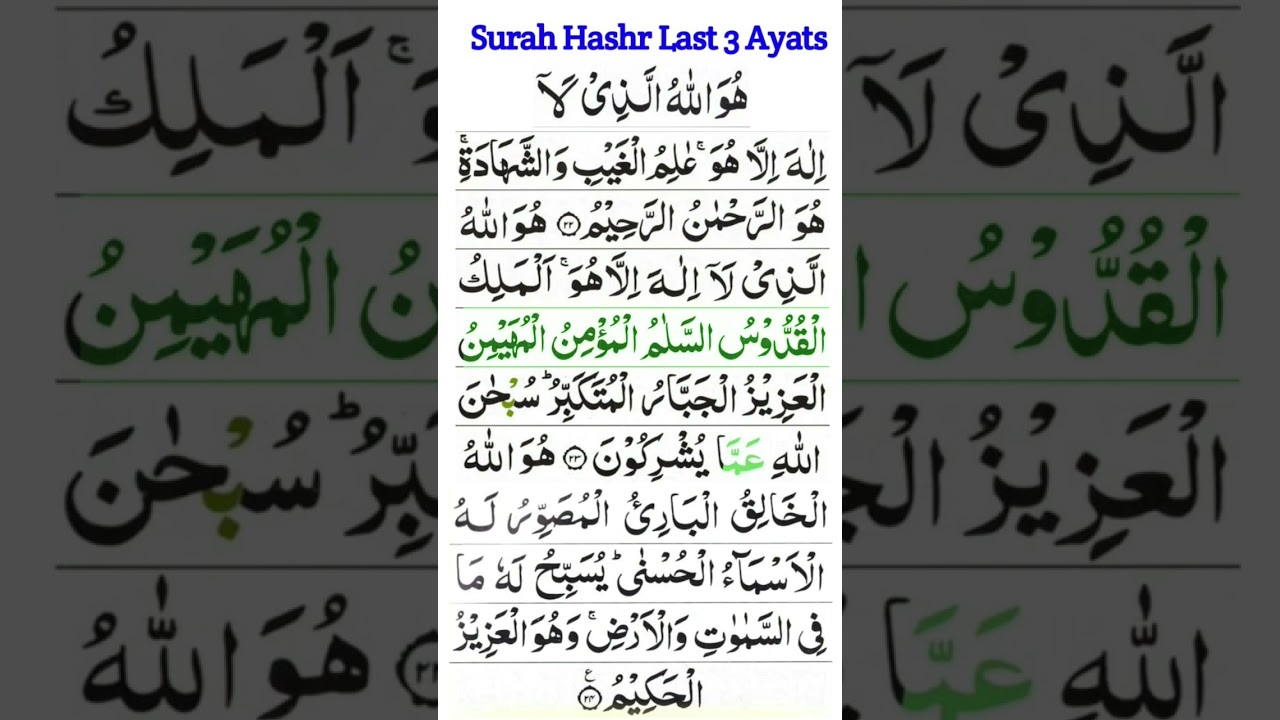 Surah Hashr Last 3 Ayats
هُوَ اللّٰهُ الَّذِیْ لَاۤ
اِلٰهَ اِلَّا هُوَ ۚ عٰلِمُ الْغَیْبِ وَالشَّهَادَةِ ۚ
هُوَ الرَّحْمٰنُ الرَّحِیْمُ ﴿۲۲﴾ هُوَ اللّٰهُ
الَّذِیْ لَاۤ اِلٰهَ اِلَّا هُوَ ۚ اَلْمَلِكُ
الْقُدُّوْسُ السَّلٰمُ الْمُؤْمِنُ الْمُهَیْمِنُ
الْعَزِیْزُ الْجَبَّارُ الْمُتَكَبِّرُ ؕ سُبْحٰنَ
اللّٰهِ عَمَّا یُشْرِكُوْنَ ﴿۲۳﴾ هُوَ اللّٰهُ
الْخَالِقُ الْبَارِئُ الْمُصَوِّرُ لَهُ
الْاَسْمَآءُ الْحُسْنٰی ؕ یُسَبِّحُ لَهٗ مَا
فِی السَّمٰوٰتِ وَالْاَرْضِ ۚ وَهُوَ الْعَزِیْزُ
الْحَكِیْمُ ﴿۲۴﴾